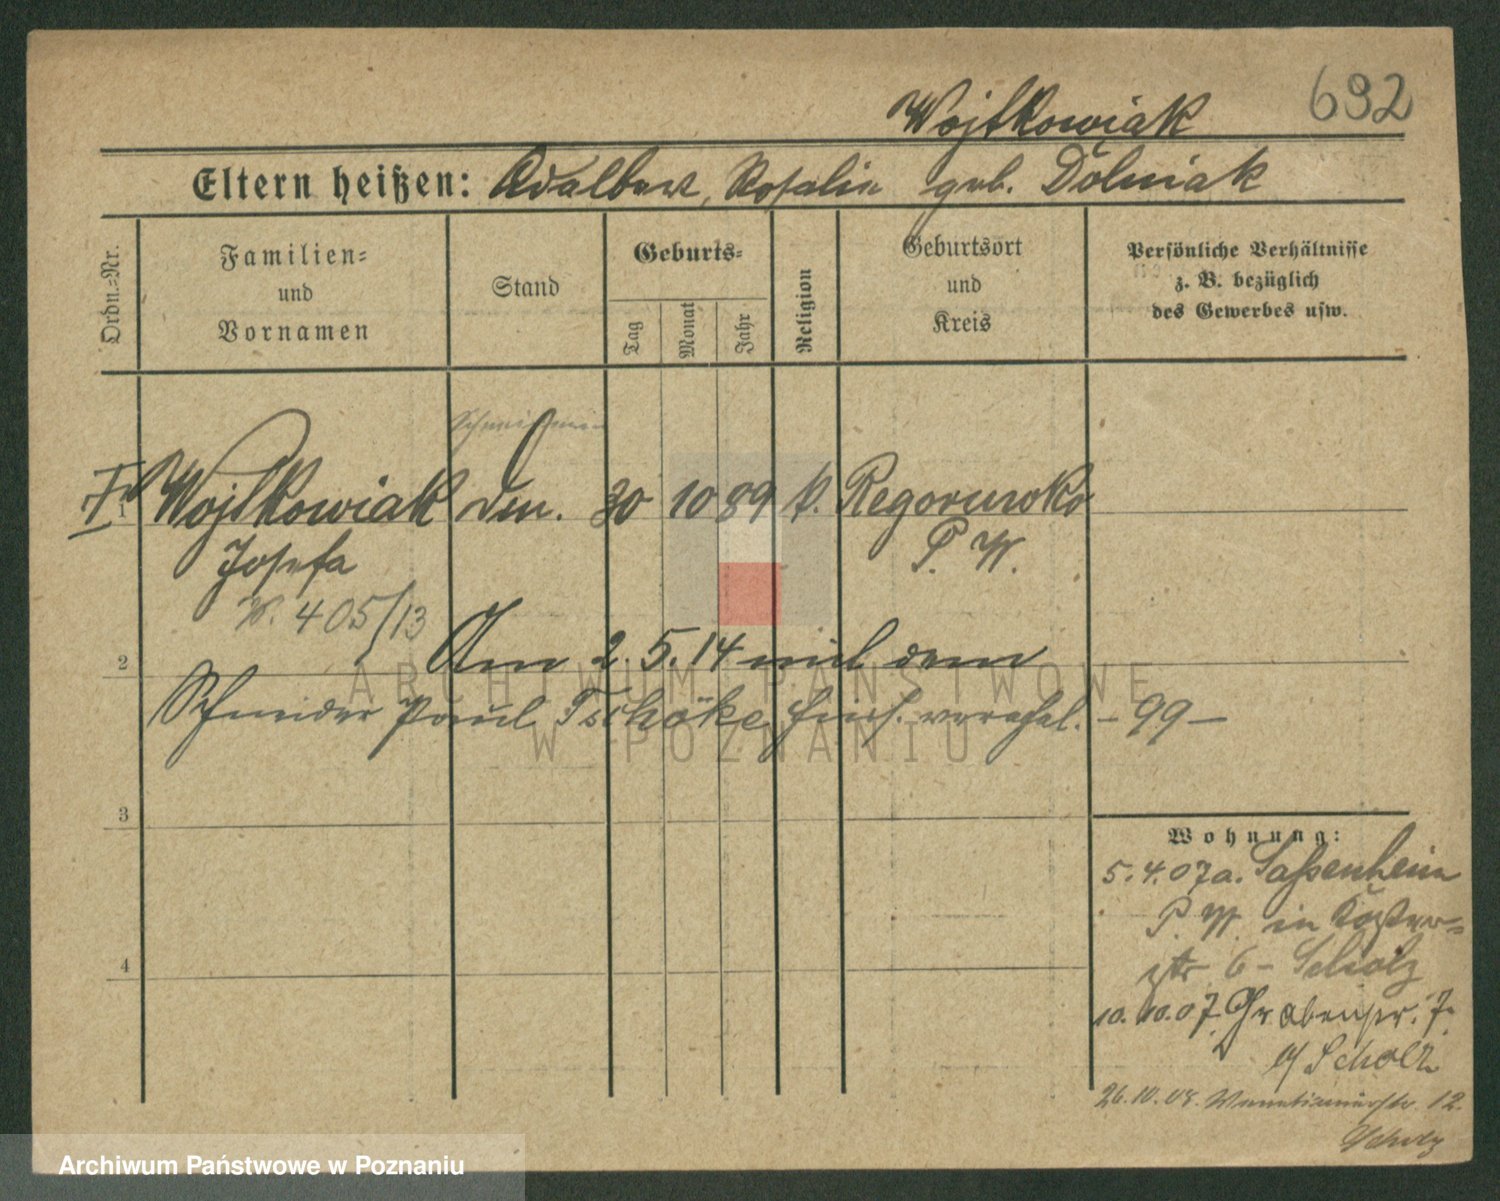 692
Wojtkowiak
Eltern heißen: Adalbert, Rosalie geb. Dolniak
Ordn.=Nr.
Familien=
und
Vornamen
Stand
Geburts=
Tag
Monat
Jahr
Religion
Geburtsort
und
Kreis
Persönliche Verhältnisse
z. B. bezüglich
des Gewerbes usw.
1
Wojtkowiak
30 10 89 k.
Josefa
P. W.
405/13
2
Am 2.5.14 mit dem
Schneider Paul Tschöke hies. verehel. - 99 -
3
4
Wohnung:
5.4.07 a. Saßenheim
P. W. in
6 - Scholz
10.10.07. Grabenstr. 7.
b/ Scholz
26.10.08. 12.
Scholz
ARCHIWUM PAŃSTWOWE
W POZNANIU
Archiwum Państwowe w Poznaniu